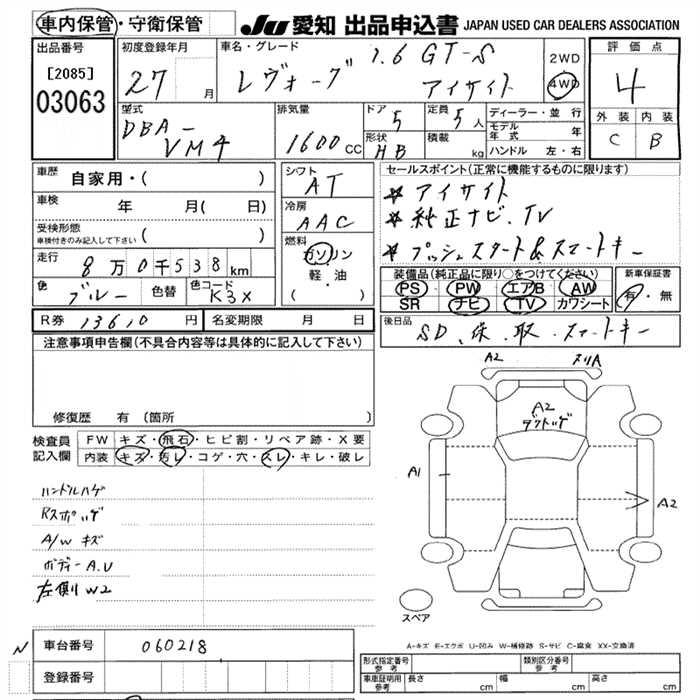 車内保管・守衛保管
JU 愛知 出品申込書 JAPAN USED CAR DEALERS ASSOCIATION
出品番号
[2085]
03063
初度登録年月
27 月
車名・グレード
レヴォーグ 1.6 GT-S
アイサイト
2WD
4WD
評価点
4
外装 内装
C B
型式
DBA-
VM4
排気量
1600 CC
ドア
5
定員
5人
形状
HB
積載
kg
ディーラー・並行
モデル年式 年
ハンドル 左・右
車歴
自家用・( )
車検
年 月( 日)
受検形態
車検付きのみ記入して下さい ( )
走行
8万0千538km
色
ブルー
色替
色コード
K3X
シフト
AT
冷房
AAC
燃料
ガソリン
軽・油
( )
セールスポイント(正常に機能するものに限ります)
★アイサイト
★純正ナビ、TV
★プッシュスタート&スマートキー
装備品(純正品に限り○をつけてください)
PS・PW・エアB・AW
SR・ナビ・TV・カワシート
新車保証書
有・無
R券 13610円
名変期限 月 日
後日品
SD、保、取、スマートキー
注意事項申告欄(不具合内容等は具体的に記入して下さい)
修復歴 有(箇所
検査員
記入欄
FW キズ・飛石・ヒビ割・リペア跡・X要
内装 キズ・汚レ・コゲ・穴・スレ・キレ・破レ
ハンドルハゲ
Rスポハゲ
A/Wキズ
ボディーA.U
左側W2
A2
ヌリA
A2
A1
A2
スペア
A-キズ E-エクボ U-凹み W-補修跡 S-サビ C-腐食 XX-交換済
N
車台番号 060218
登録番号
形式指定番号
参考
類別区分番号
参考
車庫証明用
参考
長さ cm
幅 cm
高さ cm